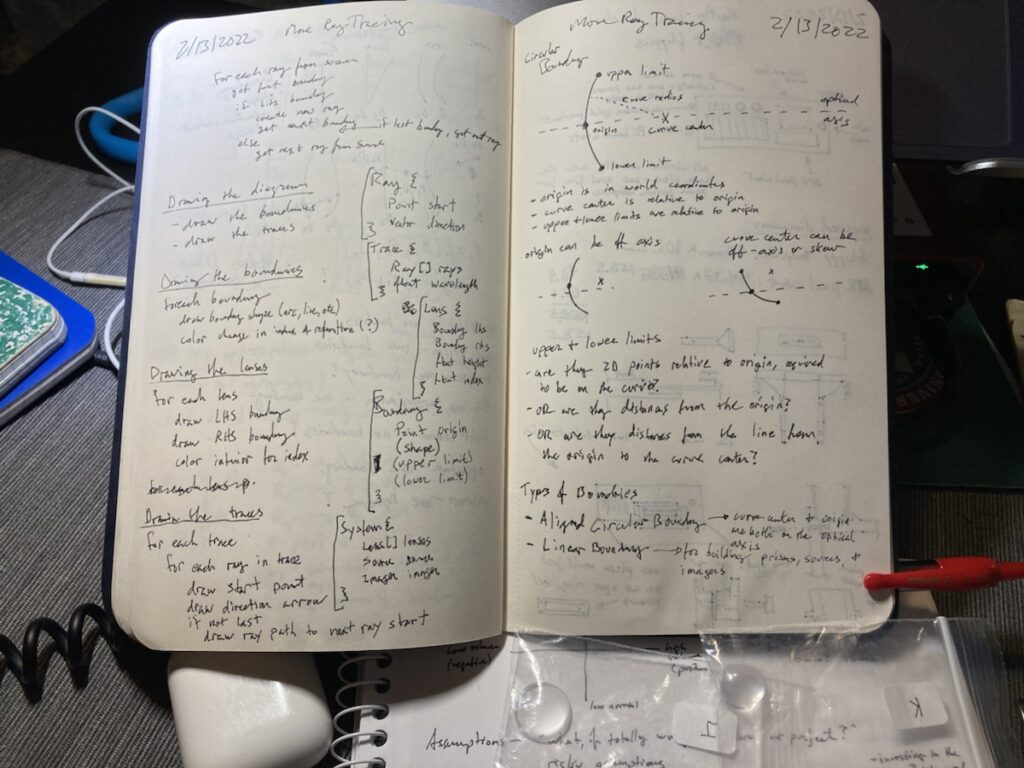 2/13/2022 More Ray Tracing
For each ray from source
get first boundary
if hits boundary
create new ray
get next boundary — if last boundary, get next ray
else
get next ray from source
Drawing the diagram
- draw the boundaries
- draw the traces
Drawing the boundaries
foreach boundary
draw boundary shape (arc, line, etc)
color change in index of refraction (?)
Drawing the lenses
for each lens
draw LHS boundary
draw RHS boundary
color interior for index
Drawing the traces
for each trace
for each ray in trace
draw start point
draw direction arrow
if not last
draw ray path to next ray start
Ray {
Point start
Vector direction
}
Trace {
Ray[] rays
float wavelength
}
Lens {
Boundary lhs
Boundary rhs
float height
float index
}
Boundary {
Point origin
(shape)
(upper limit)
(lower limit)
}
System {
Lens[] lenses
Source source
Imager imager
}
More Ray Tracing 2/13/2022
Circular
Boundary
upper limit
curve radius
optical
axis
origin
x
curve center
lower limit
- origin is in world coordinates
- curve center is relative to origin
- upper + lower limits are relative to origin
origin can be off axis
x
curve center can be
off-axis or skew
x
upper + lower limits
- are they 2D points relative to origin, required
to be on the curve?
- OR are they distances from the origin?
- OR are they distances from the line from
the origin to the curve center?
Types of Boundaries
- Aligned Circular Boundary → curve center + origin
are both on the optical
axis
- Linear Boundary → for building prisms, sources, +
imagers
(negative)
high
low normal
Assumptions - what, if totally our project?
risky assumptions
K